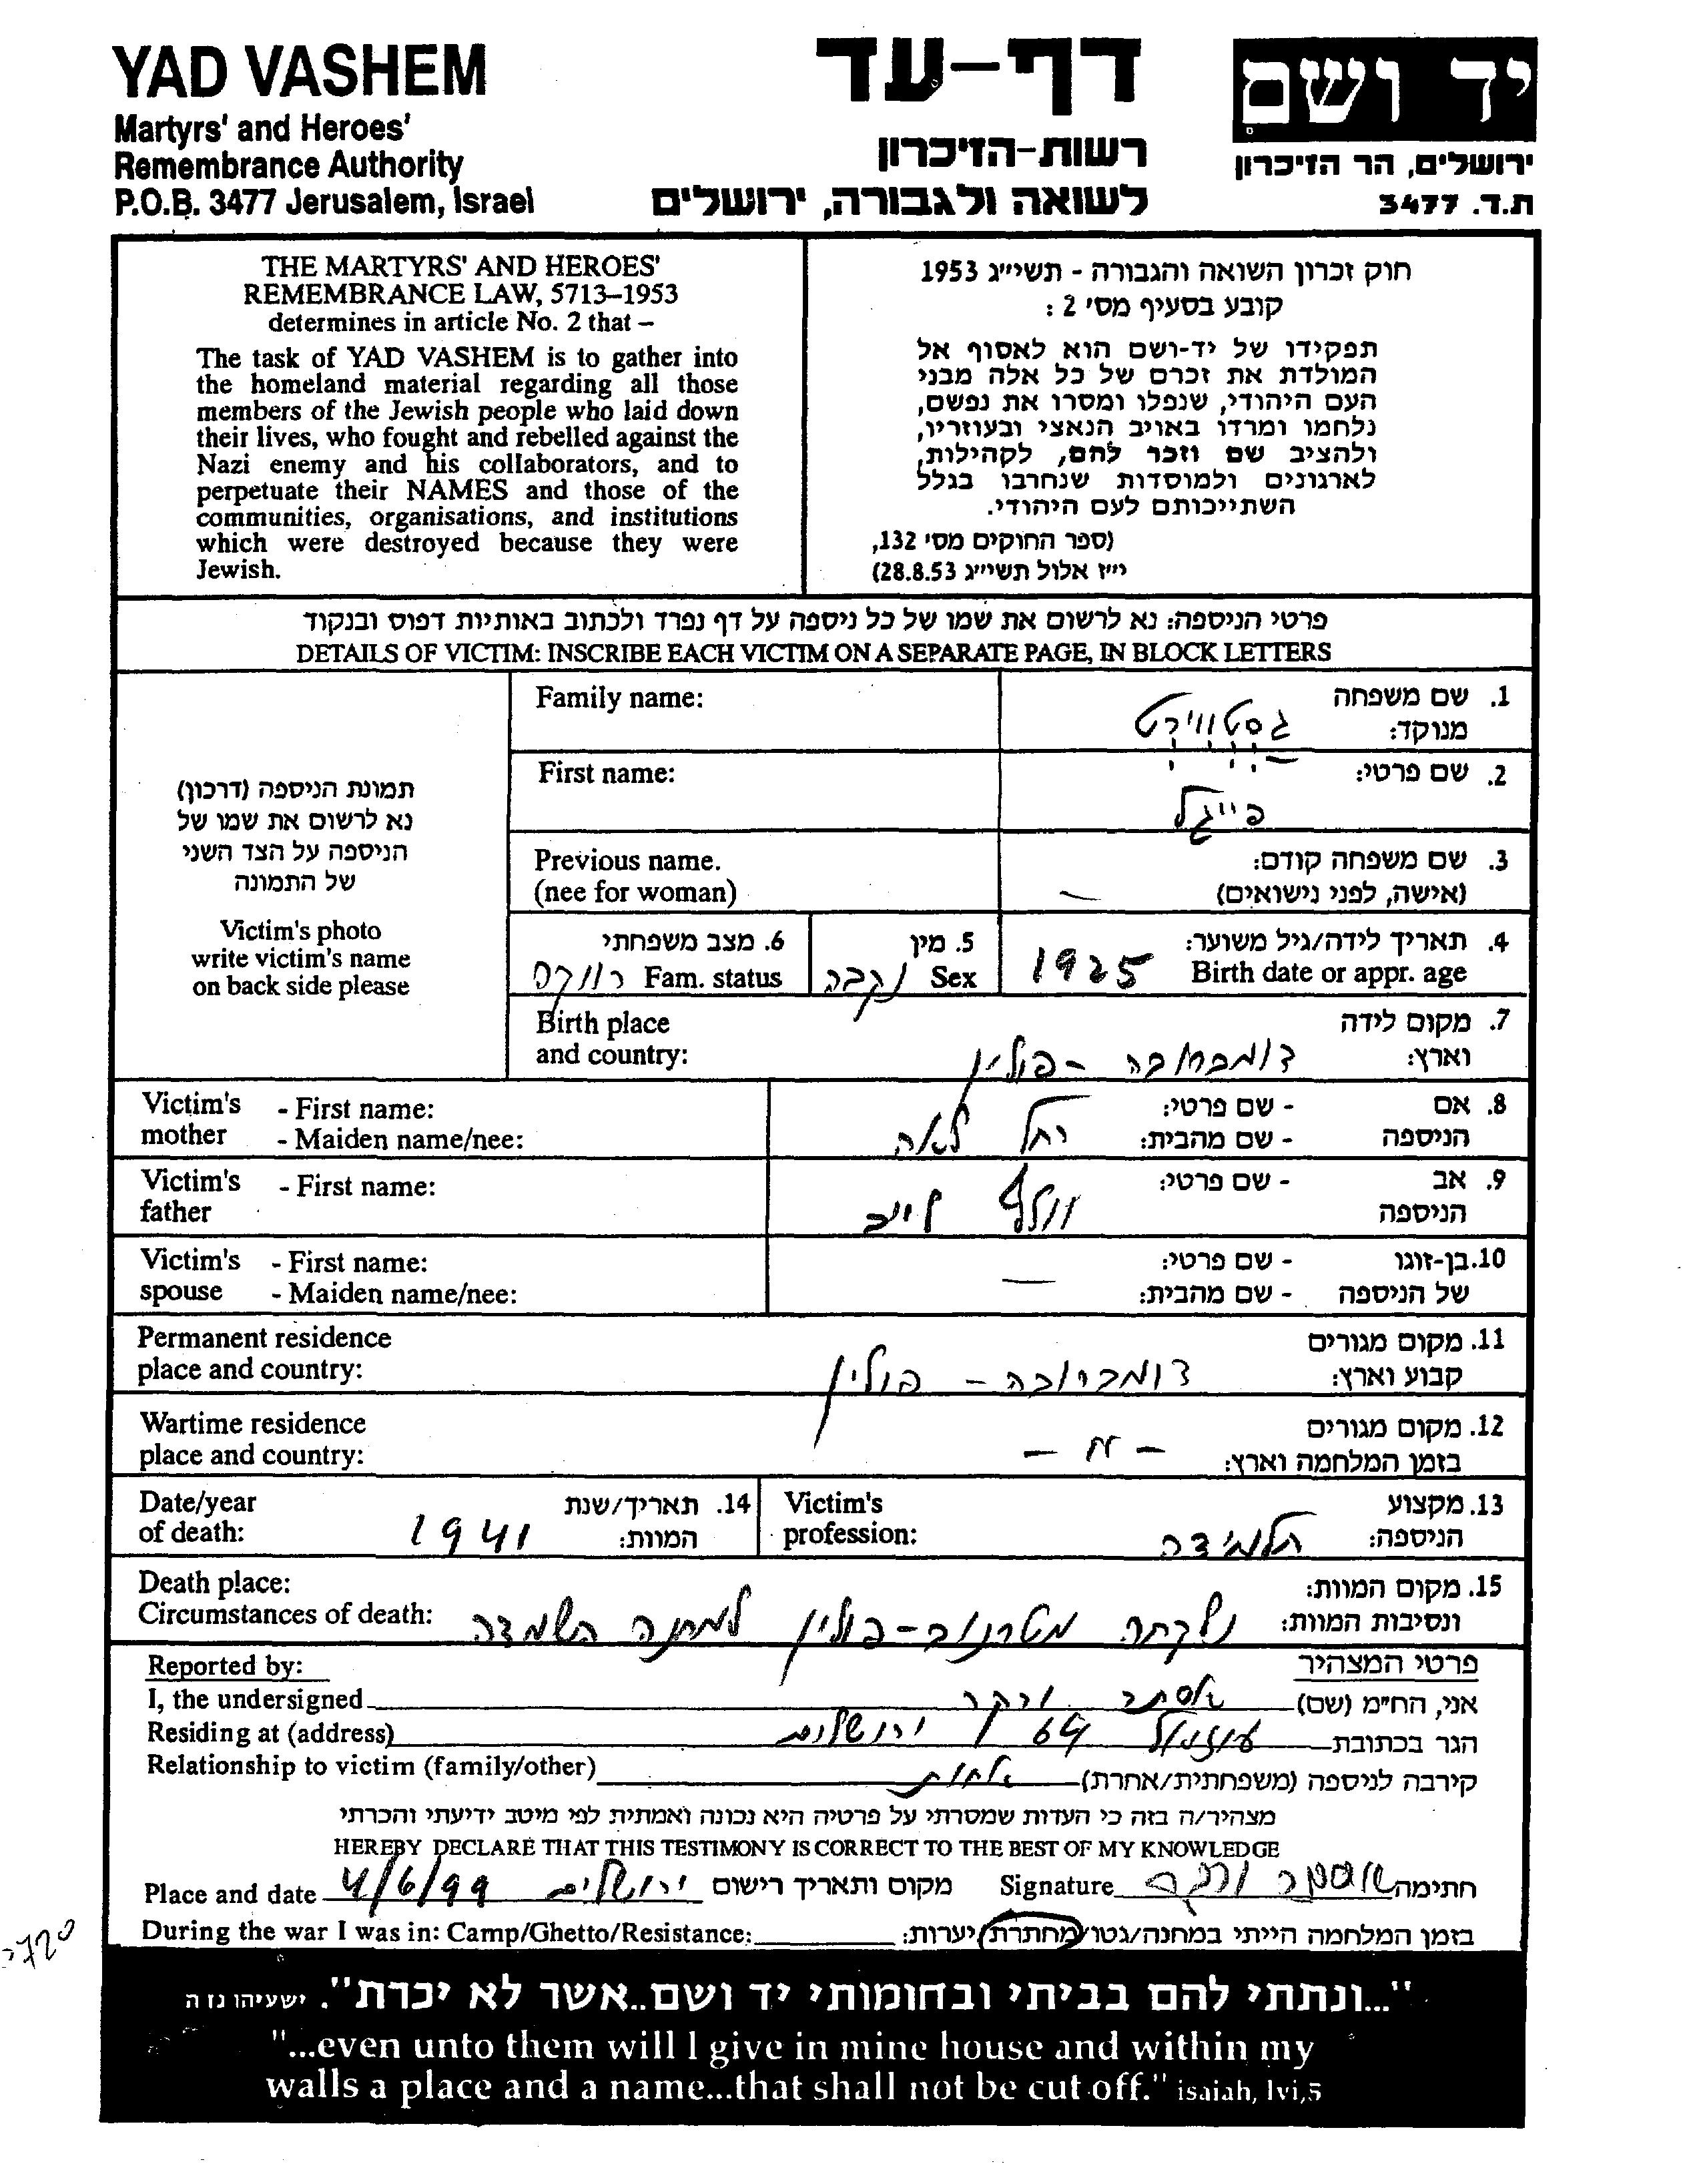 YAD VASHEM
Martyrs' and Heroes'
Remembrance Authority
P.O.B. 3477 Jerusalem, Israel
דף-עד
רשות-הזיכרון
לשואה ולגבורה, ירושלים
יד ושם
ירושלים, הר הזיכרון
ת.ד. 3477
THE MARTYRS' AND HEROES'
REMEMBRANCE LAW, 5713–1953
determines in article No. 2 that –
The task of YAD VASHEM is to gather into
the homeland material regarding all those
members of the Jewish people who laid down
their lives, who fought and rebelled against the
Nazi enemy and his collaborators, and to
perpetuate their NAMES and those of the
communities, organisations, and institutions
which were destroyed because they were
Jewish.
חוק זכרון השואה והגבורה - תשי״ג 1953
קובע בסעיף מס' 2 :
תפקידו של יד-ושם הוא לאסוף אל
המולדת את זכרם של כל אלה מבני
העם היהודי, שנפלו ומסרו את נפשם,
נלחמו ומרדו באויב הנאצי ובעוזריו,
ולהציב שם וזכר להם, לקהילות,
לארגונים ולמוסדות שנחרבו בגלל
השתייכותם לעם היהודי.
(ספר החוקים מס' 132,
י״ז אלול תשי״ג 28.8.53)
פרטי הניספה: נא לרשום את שמו של כל ניספה על דף נפרד ולכתוב באותיות דפוס ובנקוד
DETAILS OF VICTIM: INSCRIBE EACH VICTIM ON A SEPARATE PAGE, IN BLOCK LETTERS
תמונת הניספה (דרכון)
נא לרשום את שמו של
הניספה על הצד השני
של התמונה
Victim's photo
write victim's name
on back side please
Family name: גסטווירט 1. שם משפחה
מנוקד:
First name: פייגל 2. שם פרטי:
Previous name. 3. שם משפחה קודם:
(nee for woman) — (אישה, לפני נישואים)
6. מצב משפחתי 5. מין 4. תאריך לידה/גיל משוער:
רווקה Fam. status נקבה Sex 1925 Birth date or appr. age
Birth place 7. מקום לידה
and country: דומברובה - פולין וארץ:
Victim's - First name: רחל לאה - שם פרטי: 8. אם
mother - Maiden name/nee: - שם מהבית: הניספה
Victim's - First name: וולף לייב - שם פרטי: 9. אב
father הניספה
Victim's - First name: — - שם פרטי: 10.בן-זוגו
spouse - Maiden name/nee: - שם מהבית: של הניספה
Permanent residence 11. מקום מגורים
place and country: דומברובה - פולין קבוע וארץ:
Wartime residence 12. מקום מגורים
place and country: -״ - בזמן המלחמה וארץ:
Date/year 14. תאריך/שנת Victim's 13. מקצוע
of death: 1941 המוות: profession: תלמידה הניספה:
Death place: 15. מקום המוות:
Circumstances of death: נלקחה מטרנוב-פולין למחנה השמדה ונסיבות המוות:
Reported by: פרטי המצהיר
I, the undersigned אסתר ורקר אני, החי״מ (שם)
Residing at (address) עוזיאל 69 ירושלים הגר בכתובת
Relationship to victim (family/other) אחות קירבה לניספה (משפחתית/אחרת)
מצהיר/ה בזה כי העדות שמסרתי על פרטיה היא נכונה ואמתית לפי מיטב ידיעתי והכרתי
HEREBY DECLARE THAT THIS TESTIMONY IS CORRECT TO THE BEST OF MY KNOWLEDGE
Place and date 4/6/99 ירושלים מקום ותאריך רישום Signature אסתר חתימה
During the war I was in: Camp/Ghetto/Resistance: בזמן המלחמה הייתי במחנה/גטו/מחתרת/יערות:
"...ונתתי להם בביתי ובחומותי יד ושם..אשר לא יכרת". ישעיהו נז ה
"...even unto them will I give in mine house and within my
walls a place and a name...that shall not be cut off." isaiah, lvi,5